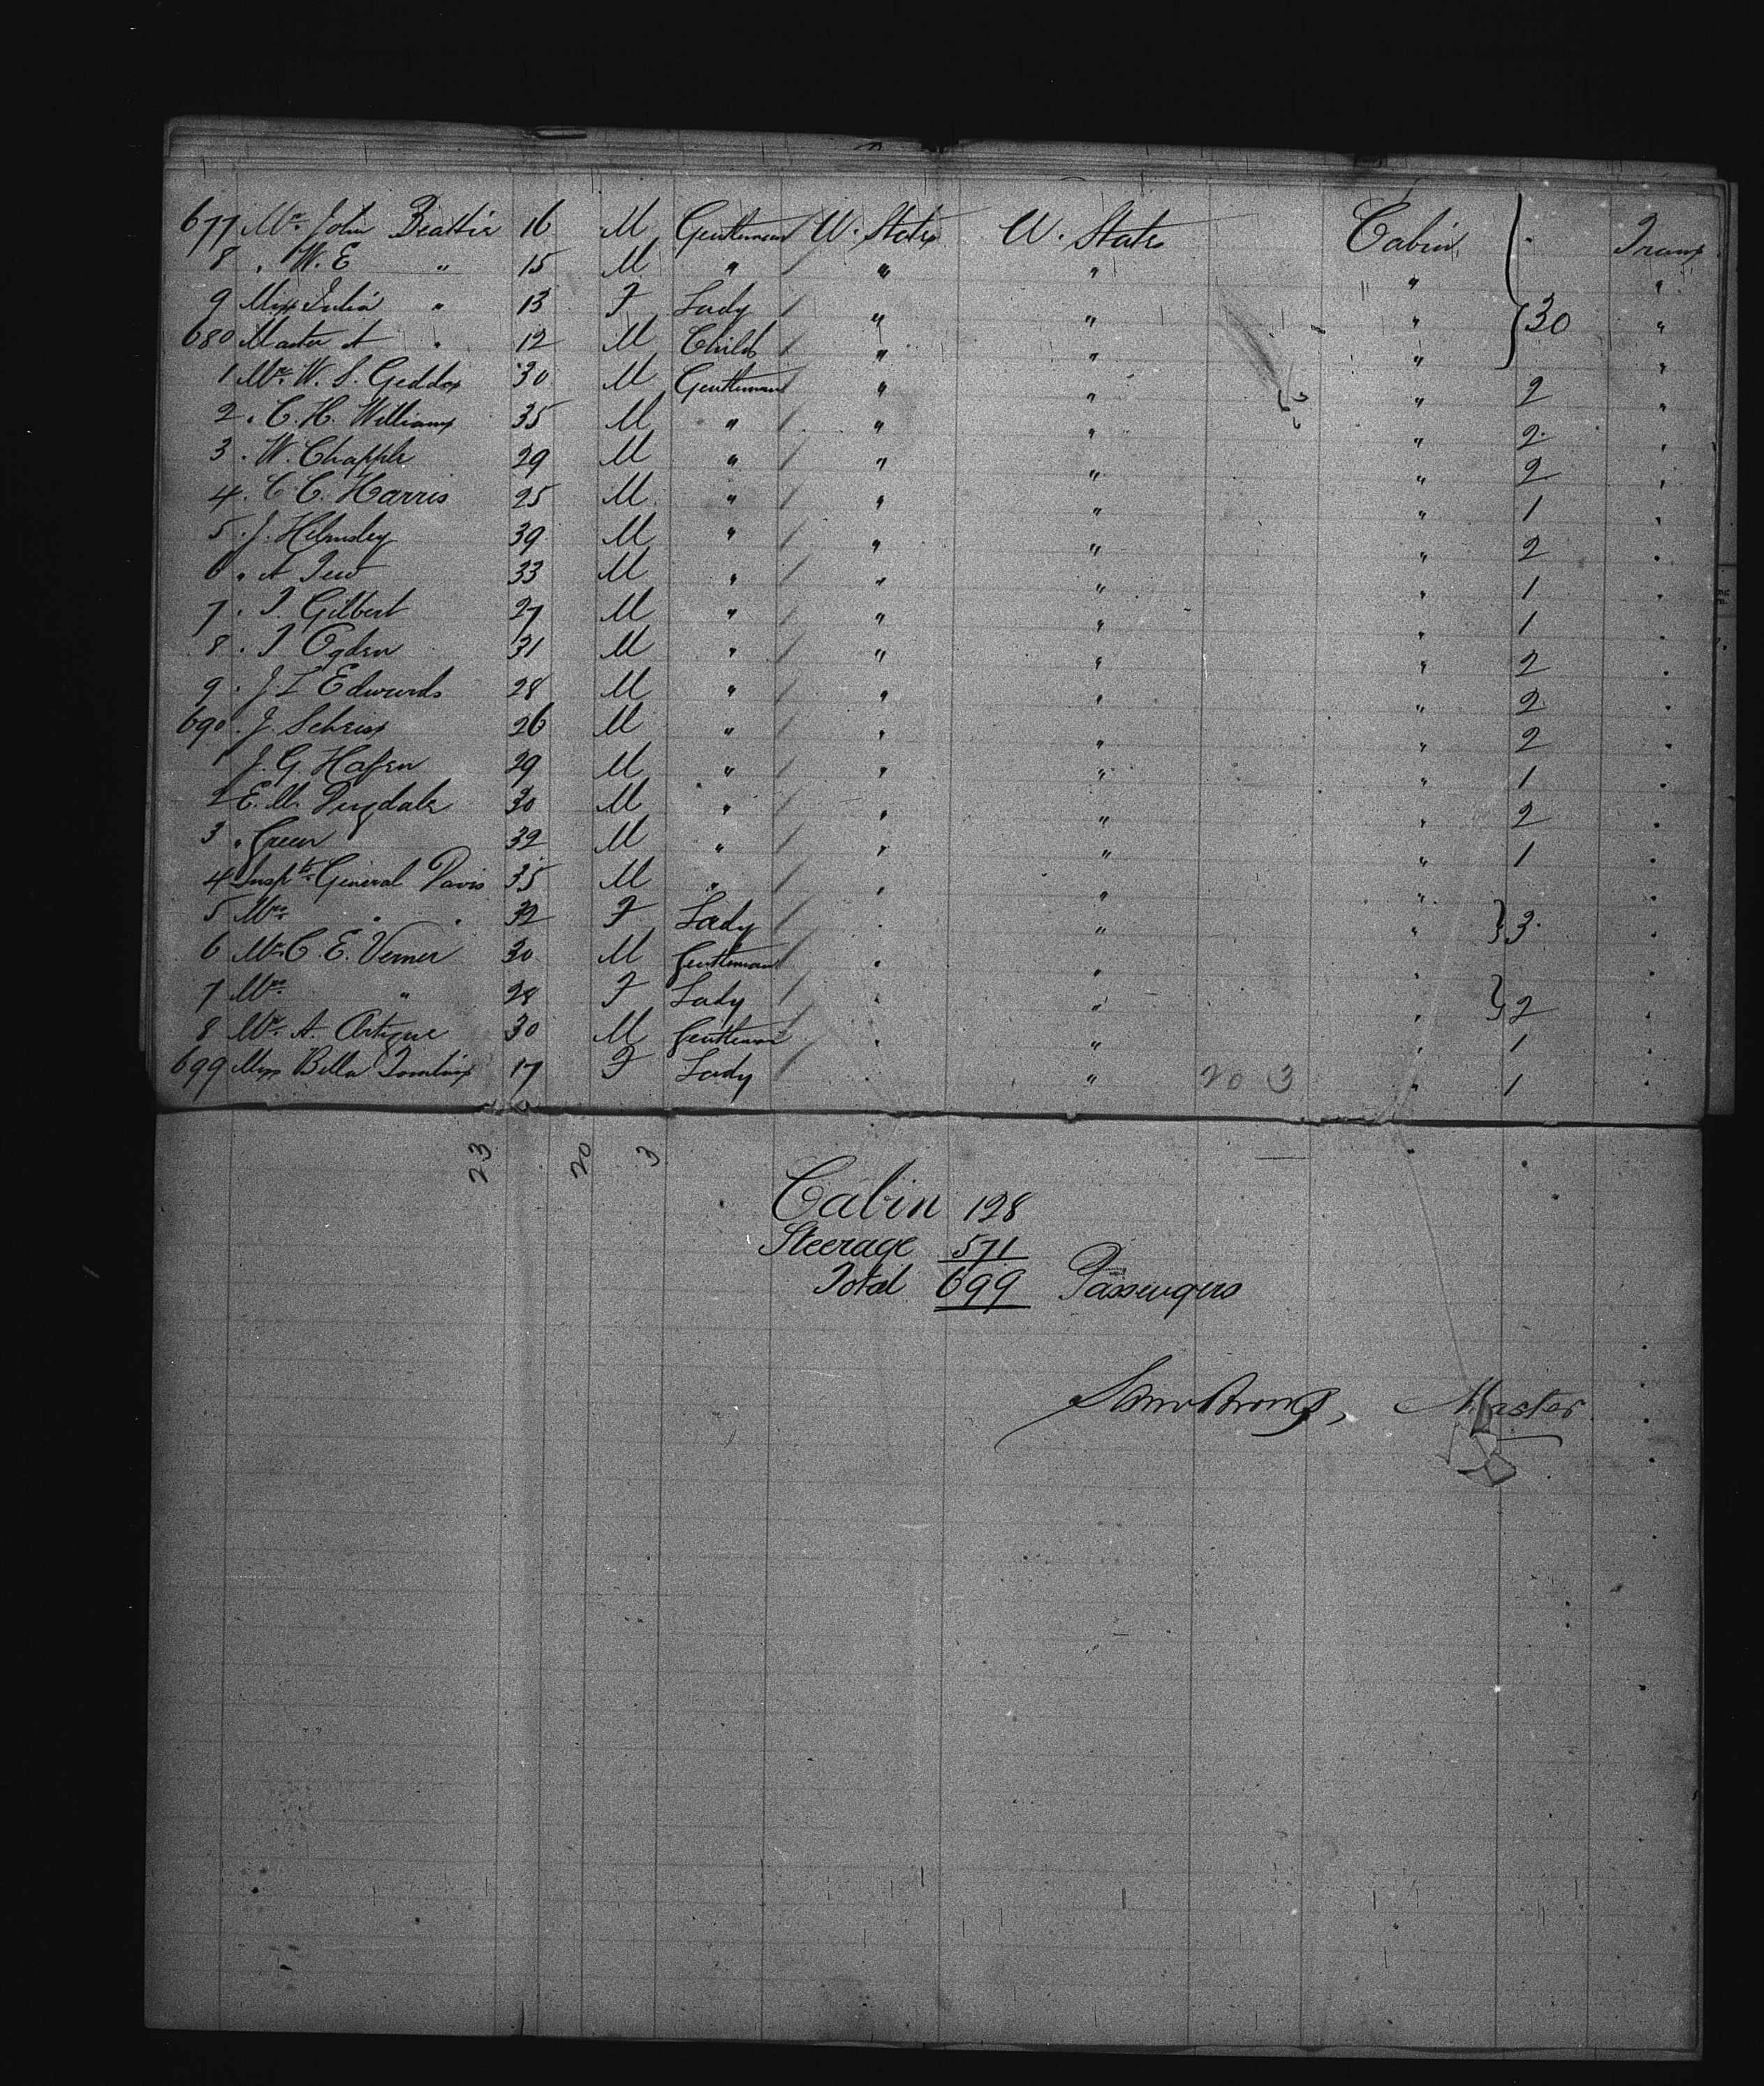 677 Mr. John Beattie 16 M Gentleman U. States U. States Cabin Transp
8 " W. E " 15 M " " " " "
9 Miss Julia " 13 F Lady " " " 30 "
680 Master A " 12 M Child " " " "
1 Mr. W. S. Geddes 30 M Gentleman " " " 2 "
2 " C. H. Williams 35 M " " " " 2 "
3 " W. Chapple 29 M " " " " 2 "
4 " C. C. Harris 25 M " " " " 1 "
5 " J. Helmsley 39 M " " " " 2 "
6 " A 33 M " " " " 1 "
7 " T. Gilbert 27 M " " " " 1 "
8 " T Ogden 31 M " " " " 2 "
9 " J L Edwards 28 M " " " " 2 "
690 " J. 26 M " " " " 2 "
J. G. Hafen 29 M " " " " 1 "
2 E. M. Dugdale 30 M " " " " 2 "
3 " Green 32 M " " " " 1 "
4 Inspt. General Davis 35 M " " " " "
5 Mrs. " " 32 F Lady " " " 3 "
6 Mr. C. E. Verner 30 M Gentleman " " " "
7 Mrs. " 28 F Lady " " " 2 "
8 Mr. A. Artigue 30 M Gentleman " " " 1 "
699 Miss Bella 17 F Lady " " 20 3 " 1 "
23 20 3
Cabin 128
Steerage 571
Total 699 Passengers
Master